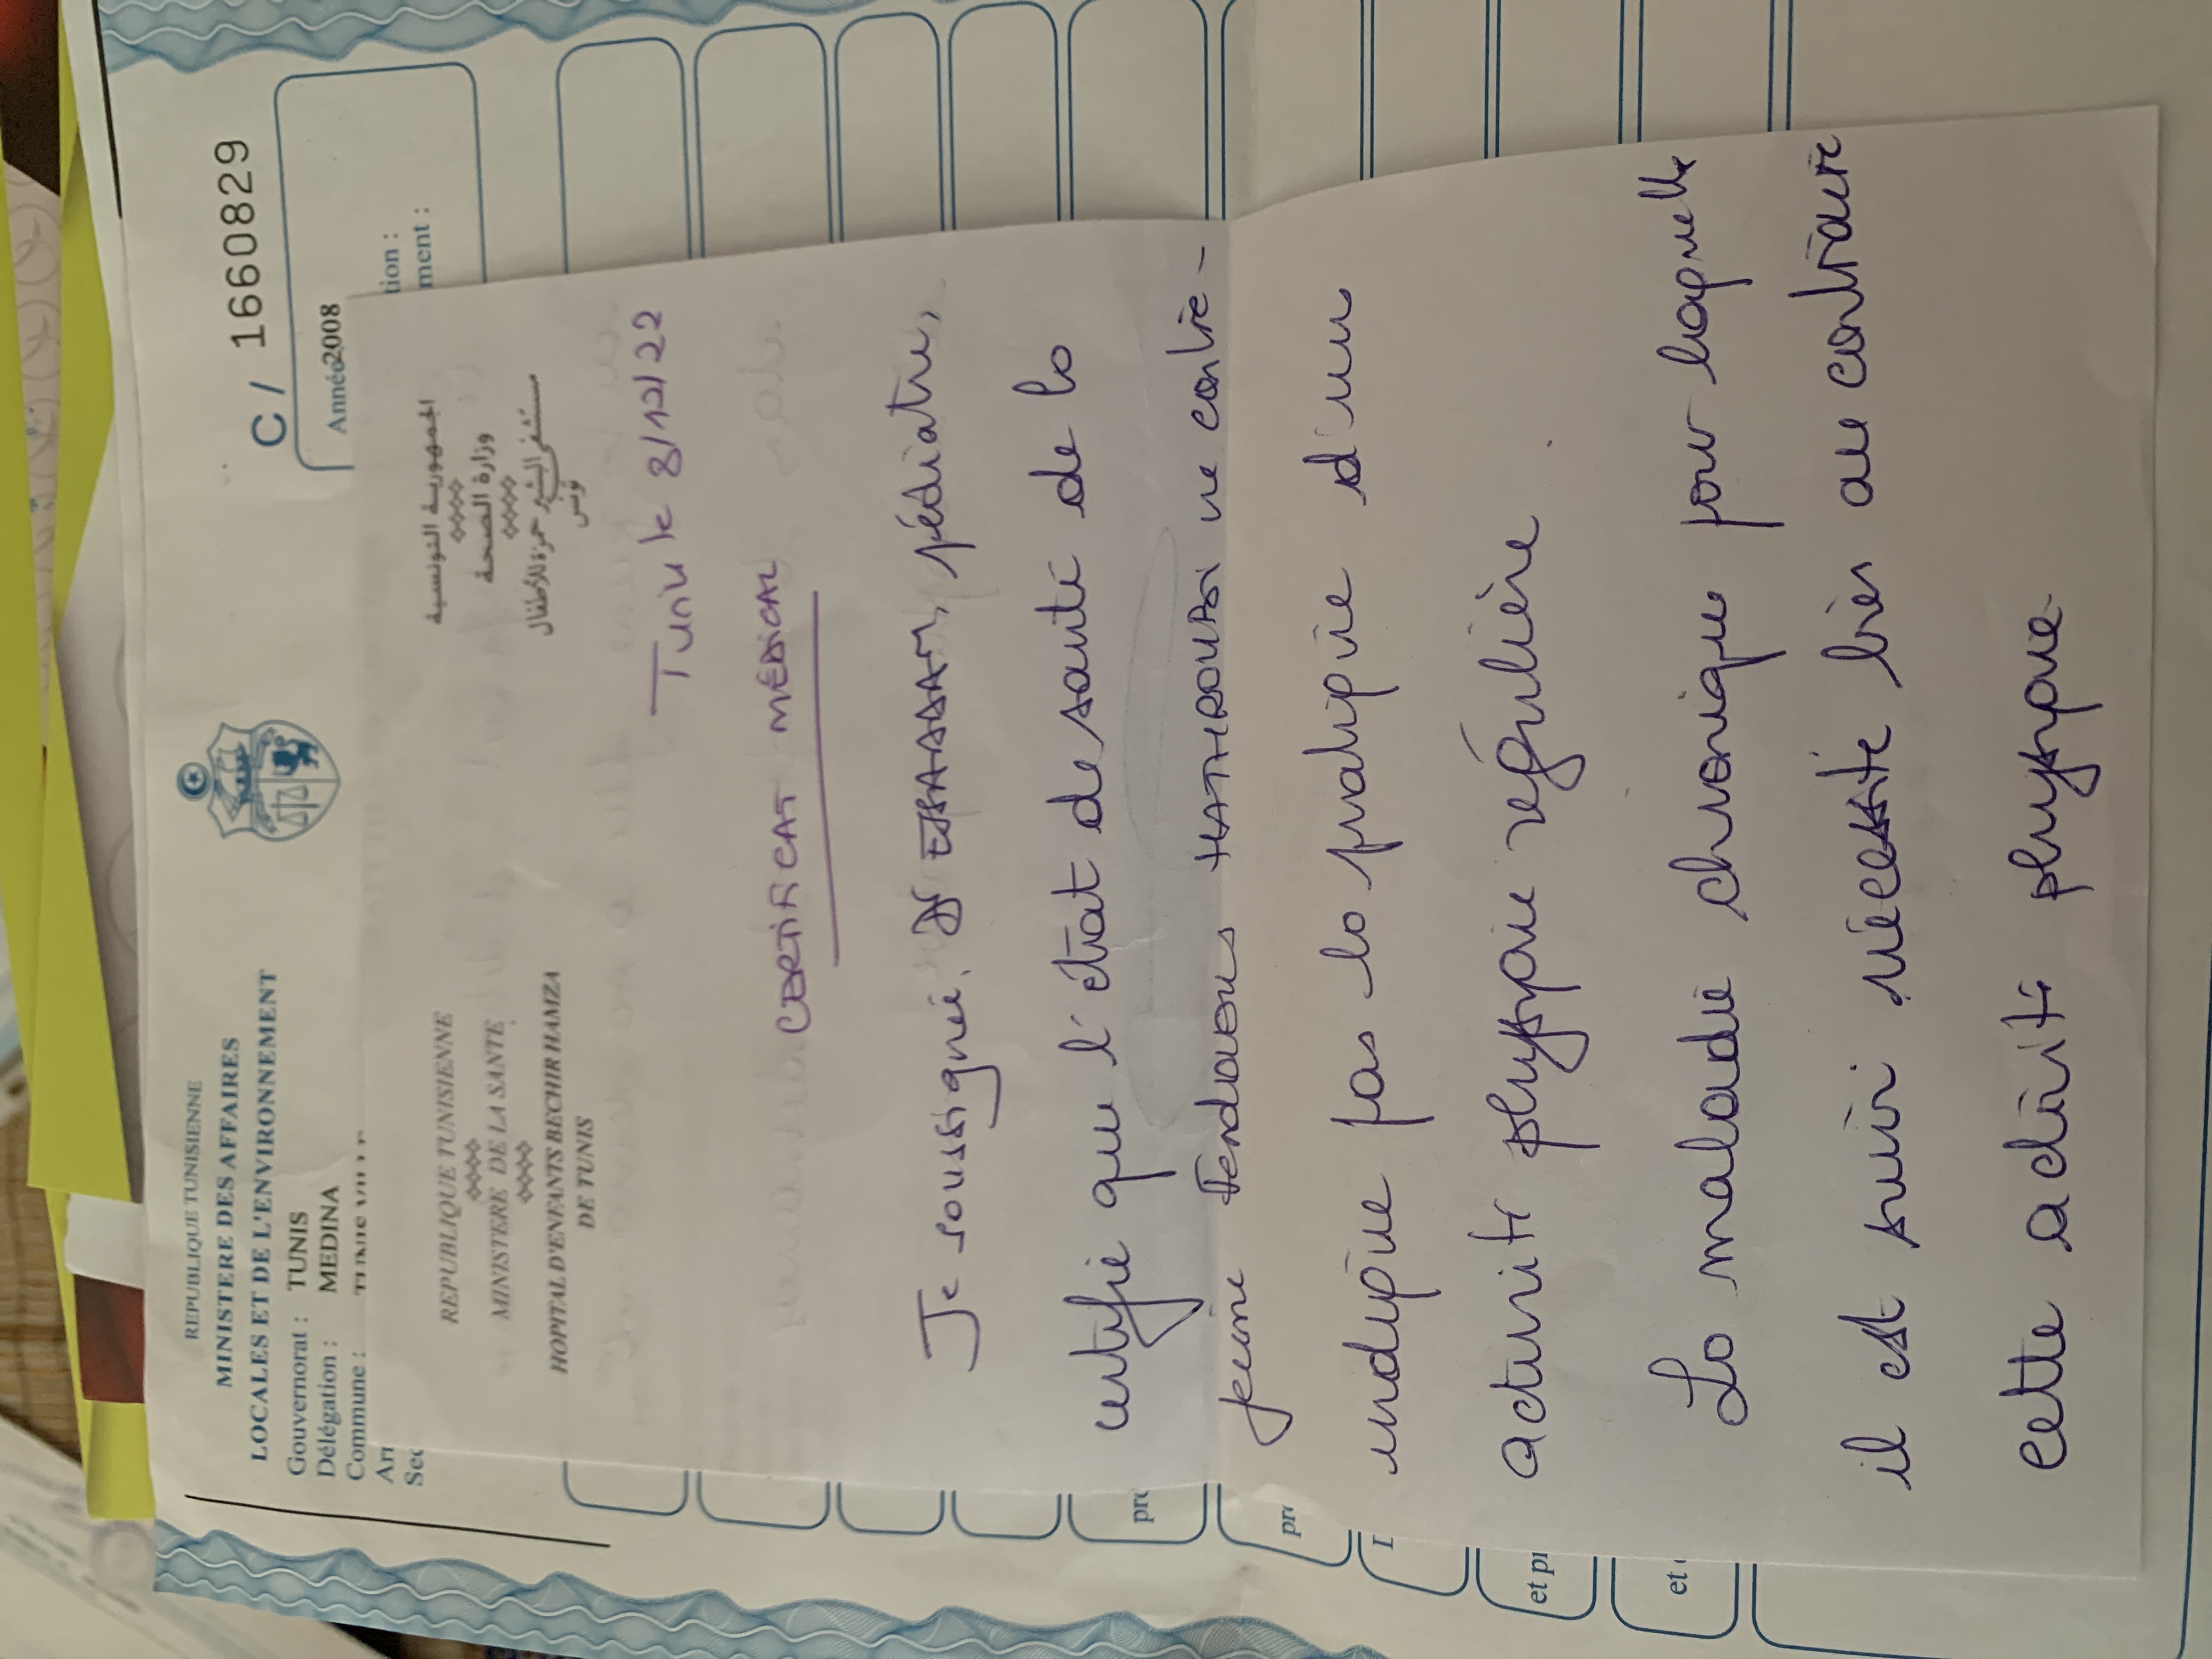 REPUBLIQUE TUNISIENNE
MINISTERE DES AFFAIRES
LOCALES ET DE L'ENVIRONNEMENT
Gouvernorat : TUNIS
Délégation : MEDINA
Commune :
C / 1660829
Année2008
tion :
ment :
REPUBLIQUE TUNISIENNE
MINISTERE DE LA SANTE
HOPITAL D'ENFANTS BECHIR HAMZA
DE TUNIS
الجمهورية التونسية
وزارة الصحة
مستشفى البشير حمزة للأطفال
تونس
Tunis le 8/12/22
CERTIFICAT MEDICAL
Je soussigné, Dr pédiatre,
certifie que l'état de santé de la
jeune ne contre-
indique pas la pratique d'une
activité physique régulière.
La maladie chronique pour laquelle
il est suivi nécessite bien au contraire
cette activité physique.
pr
et pr
et